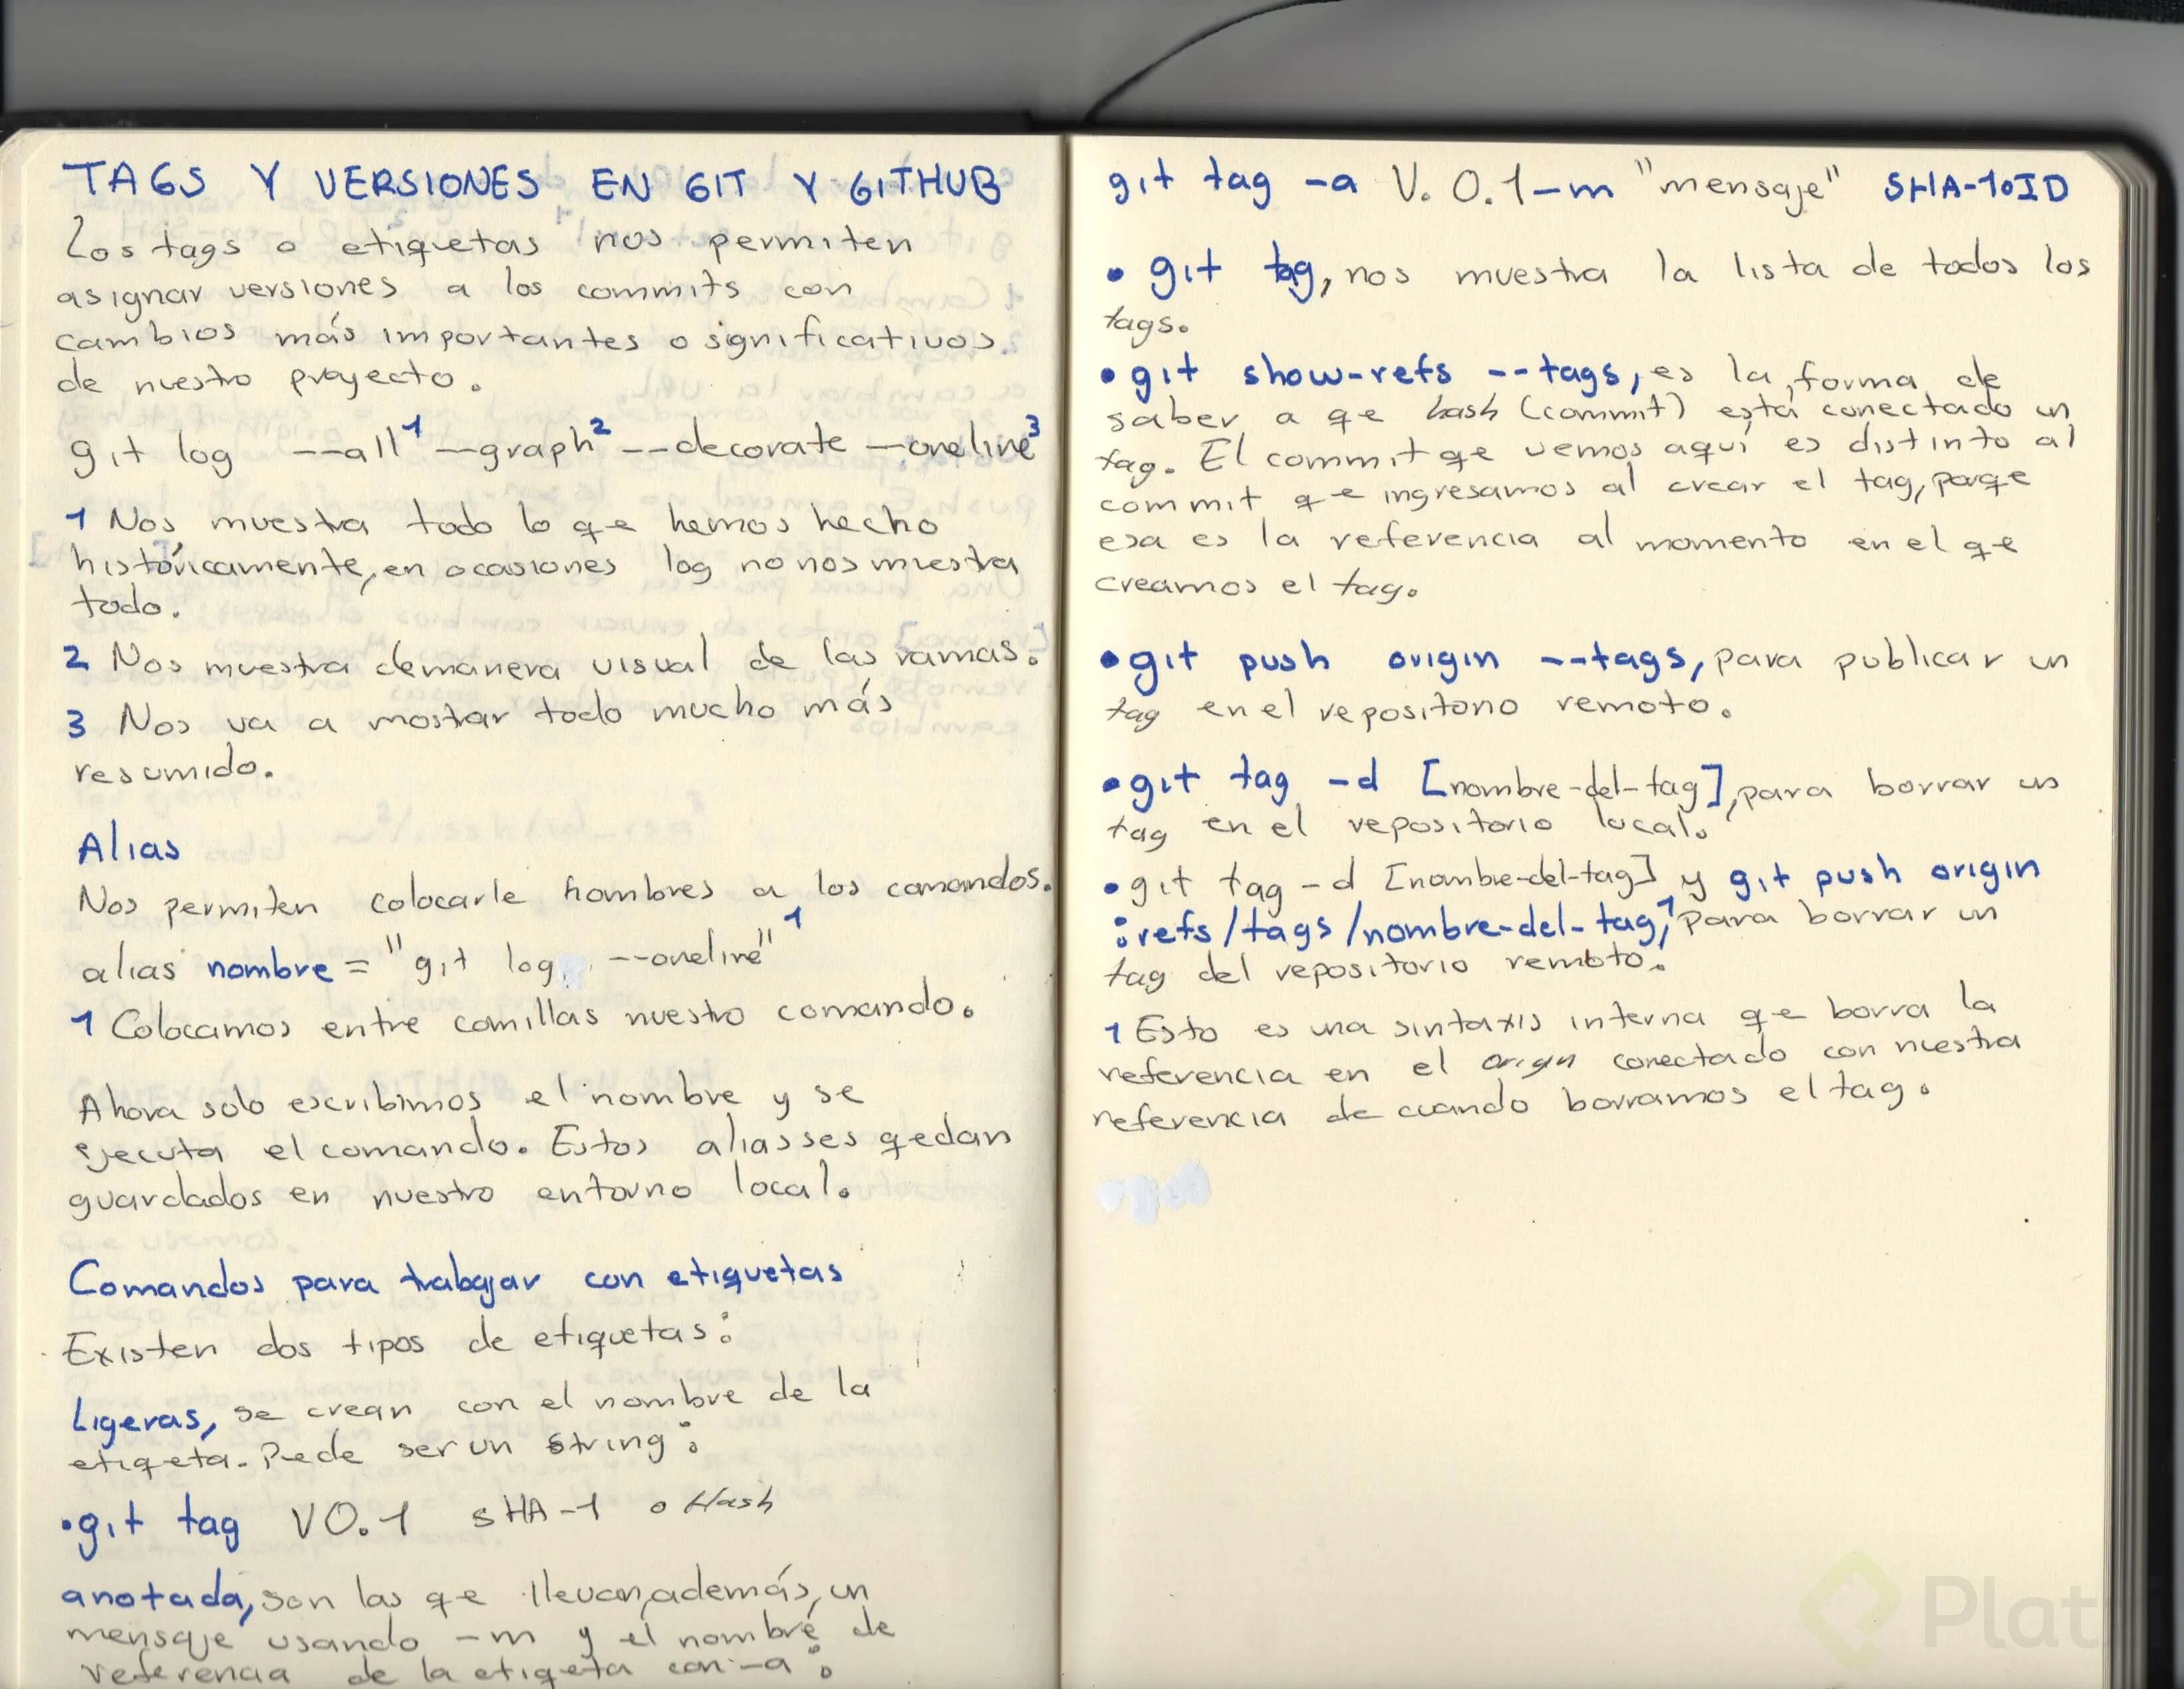 TAGS Y VERSIONES EN GIT Y GITHUB
Los tags o etiquetas nos permiten
asignar versiones a los commits con
cambios más importantes o significativos
de nuestro proyecto.
git log --all¹ --graph² --decorate --oneline³
1 Nos muestra todo lo qe hemos hecho
históricamente, en ocasiones log no nos muestra
todo.
2 Nos muestra de manera visual de las ramas.
3 Nos va a mostrar todo mucho más
resumido.
Alias
Nos permiten colocarle nombres a los comandos.
alias nombre = "git log --oneline"¹
1 Colocamos entre comillas nuestro comando.
Ahora solo escribimos el nombre y se
ejecuta el comando. Estos aliasses qedan
guardados en nuestro entorno local.
Comandos para trabajar con etiquetas
Existen dos tipos de etiquetas:
Ligeras, se crean con el nombre de la
etiqeta. Pede ser un string:
•git tag V0.1 SHA-1 o Hash
anotada, son las qe llevan, además, un
mensaje usando -m y el nombre de
referencia de la etiqeta con -a:
git tag -a V. 0.1 -m "mensaje" SHA-1 o ID
• git tag, nos muestra la lista de todos los
tags.
• git show-refs --tags, es la forma de
saber a qe hash (commit) está conectado un
tag. El commit qe vemos aquí es distinto al
commit qe ingresamos al crear el tag, porqe
esa es la referencia al momento en el qe
creamos el tag.
• git push origin --tags, para publicar un
tag en el repositorio remoto.
• git tag -d [nombre-del-tag], para borrar un
tag en el repositorio local.
• git tag -d [nombre-del-tag] y git push origin
:refs/tags/nombre-del-tag,¹ para borrar un
tag del repositorio remoto.
1 Esto es una sintaxis interna qe borra la
referencia en el origin conectado con nuestra
referencia de cuando borramos el tag.
Plat